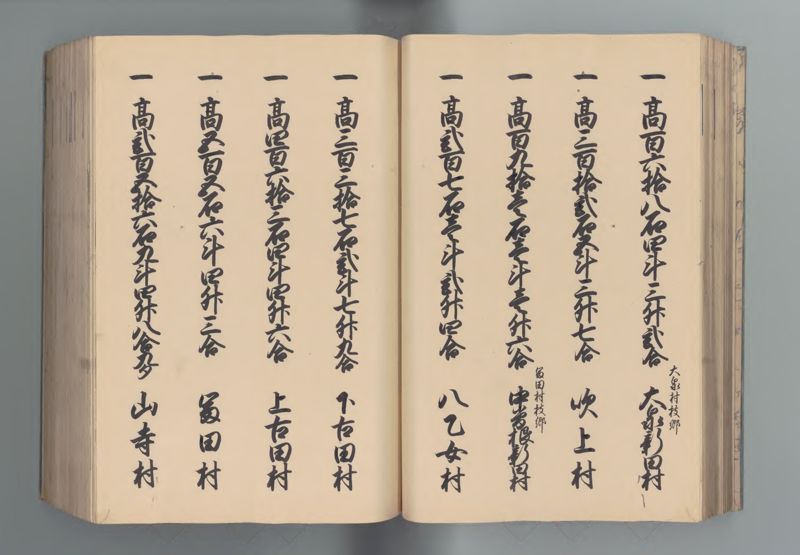 一 高百六拾八石四斗三升弐合 大泉村枝郷 大泉新田村
一 高三百拾弐石五斗三升七合 吹上村
一 高百九拾壱石壱斗壱升六合 富田村枝郷 中曽根新田村
一 高弐百七石壱斗弐升四合 八乙女村
一 高三百三拾七石弐斗七升九合 下古田村
一 高四百六拾三石四斗四升六合 上古田村
一 高五百五石六斗四升三合 富田村
一 高弐百五拾六石九斗四升八合 山寺村